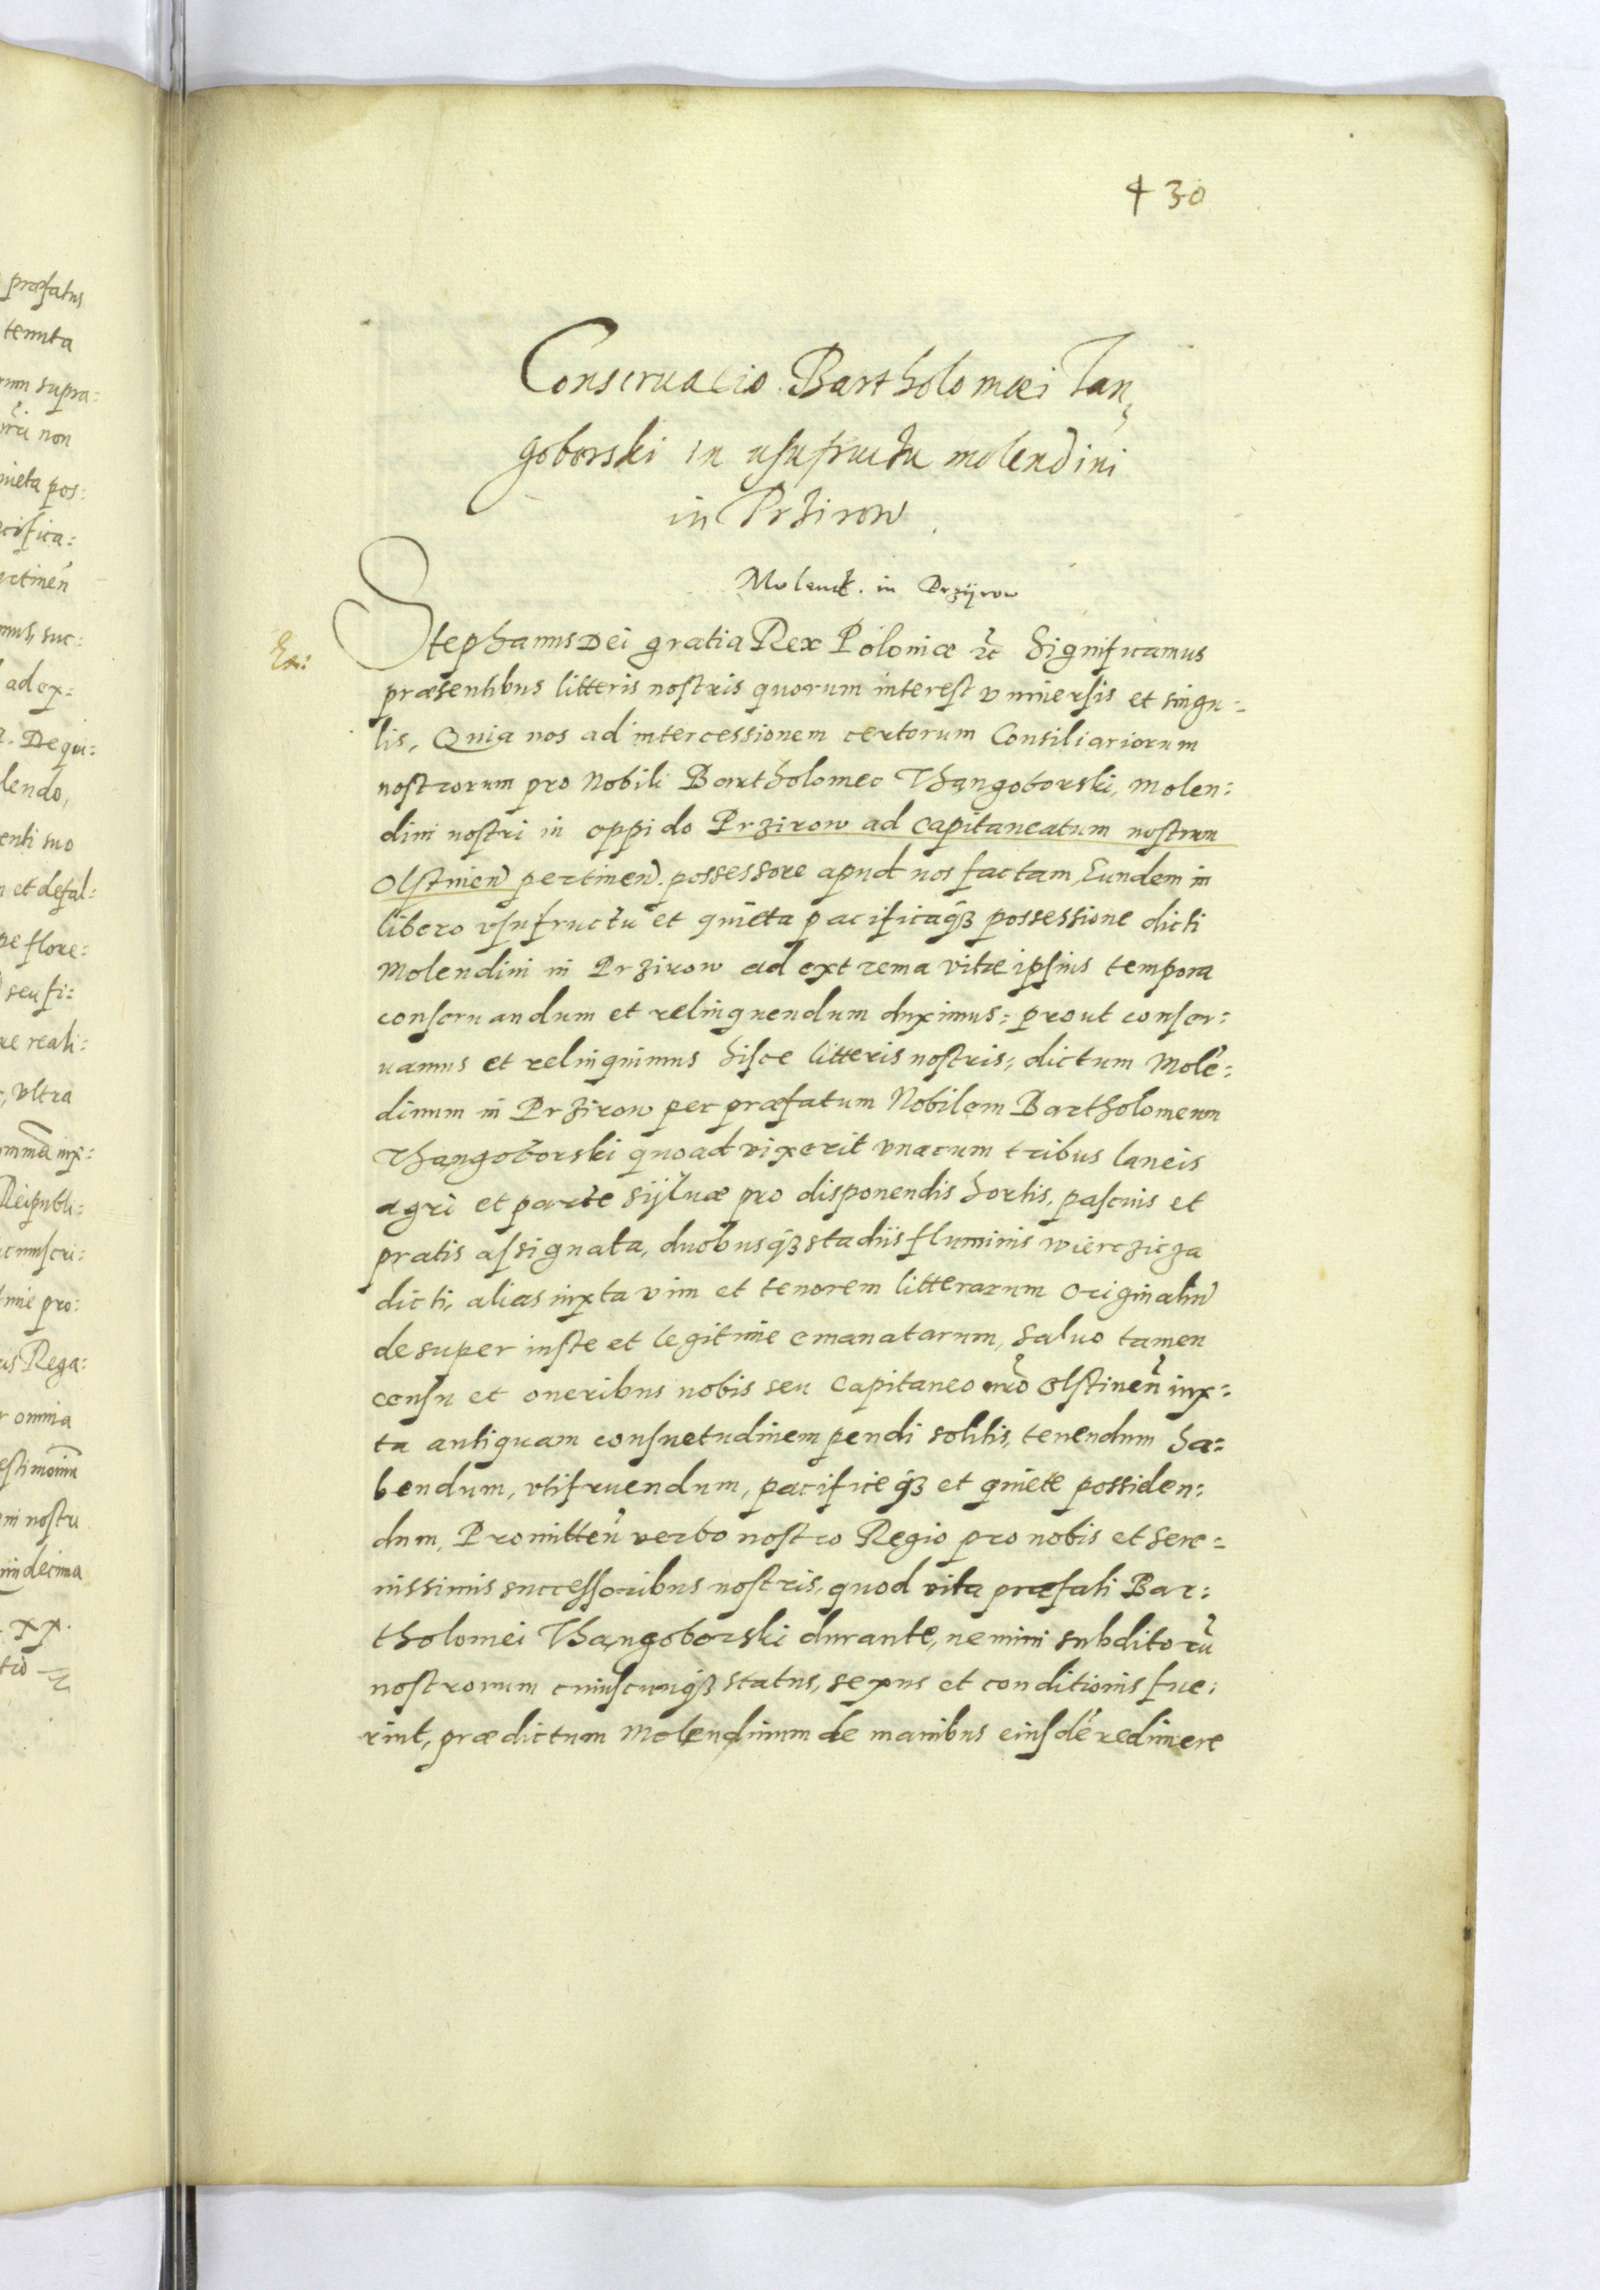 præfatus
tenuta
rum supra:
non
quieta pos:
cifica:
ertineñ
mus, suc:
ad ex:
De qui:
lendo,
enti suo
n et defal:
pe flore:
seu fi:
ræ reali:
vltra
omma iux:
Reipubli:
icumscri:
time pro:
is Rega:
r omnia
estimoniu
m nostru
in decima
xx.
430
Conseruatio Bartholomæi Tan,
goborski in usufructu molendini
in Przirow
Molend. in Przÿrow
Ex:
Stephanus Dei gratia Rex Poloniæ etc Significamus
præsentibus litteris nostris quorum interest vniuersis et singu:
lis, Quia nos ad intercessionem certorum Consiliariorum
nostrorum pro Nobili Bartholomeo Thangoborski, molen:
dini nostri in oppido Przirow ad capitaneatum nostrum
Olstineñ pertineñ. possessore apud nos factam, Eundem in
libero vsufructu et quieta pacificaq3 possessione dicti
Molendini in Przirow ad extrema vitæ ipsius tempora
conseruandum et relinquendum duximus: prout conser:
uamus et relinquimus hisce litteris nostris, dictum Molē:
dinum in Przirow per præfatum Nobilem Bartholomeum
Thangoborski quoad vixerit vnacum tribus laneis
agri et parte sÿluæ pro disponendis hortis, pascuis et
pratis assignata, duobusq3 stadiis fluminis wierczicza
dicti, alias iuxta vim et tenorem litterarum originaliū
desuper iuste et legitime emanatarum, saluo tamen
censu et oneribus nobis seu Capitaneo nr̃o Olstineñ iux:
ta antiquam consuetudinem pendi solitis, tenendum ha:
bendum, vtifruendum, pacificeq3 et quiete possiden:
dum, Promitteñ verbo nostro Regio pro nobis et sere:
nissimis successoribus nostris, quod vita præfati Bar:
tholomei Thangoborski durante, nemini subditorū
nostrorum cuiuscunq3 status, sexus et conditionis fue:
rint, prædictum Molendinum de manibus eiusdē redimere